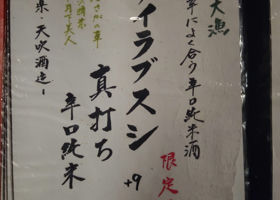 大漁
によく合う辛口純米酒
限定
イラブスシ
+9
真打ち
辛口純米
さがの華
月下美人
・天吹酒造